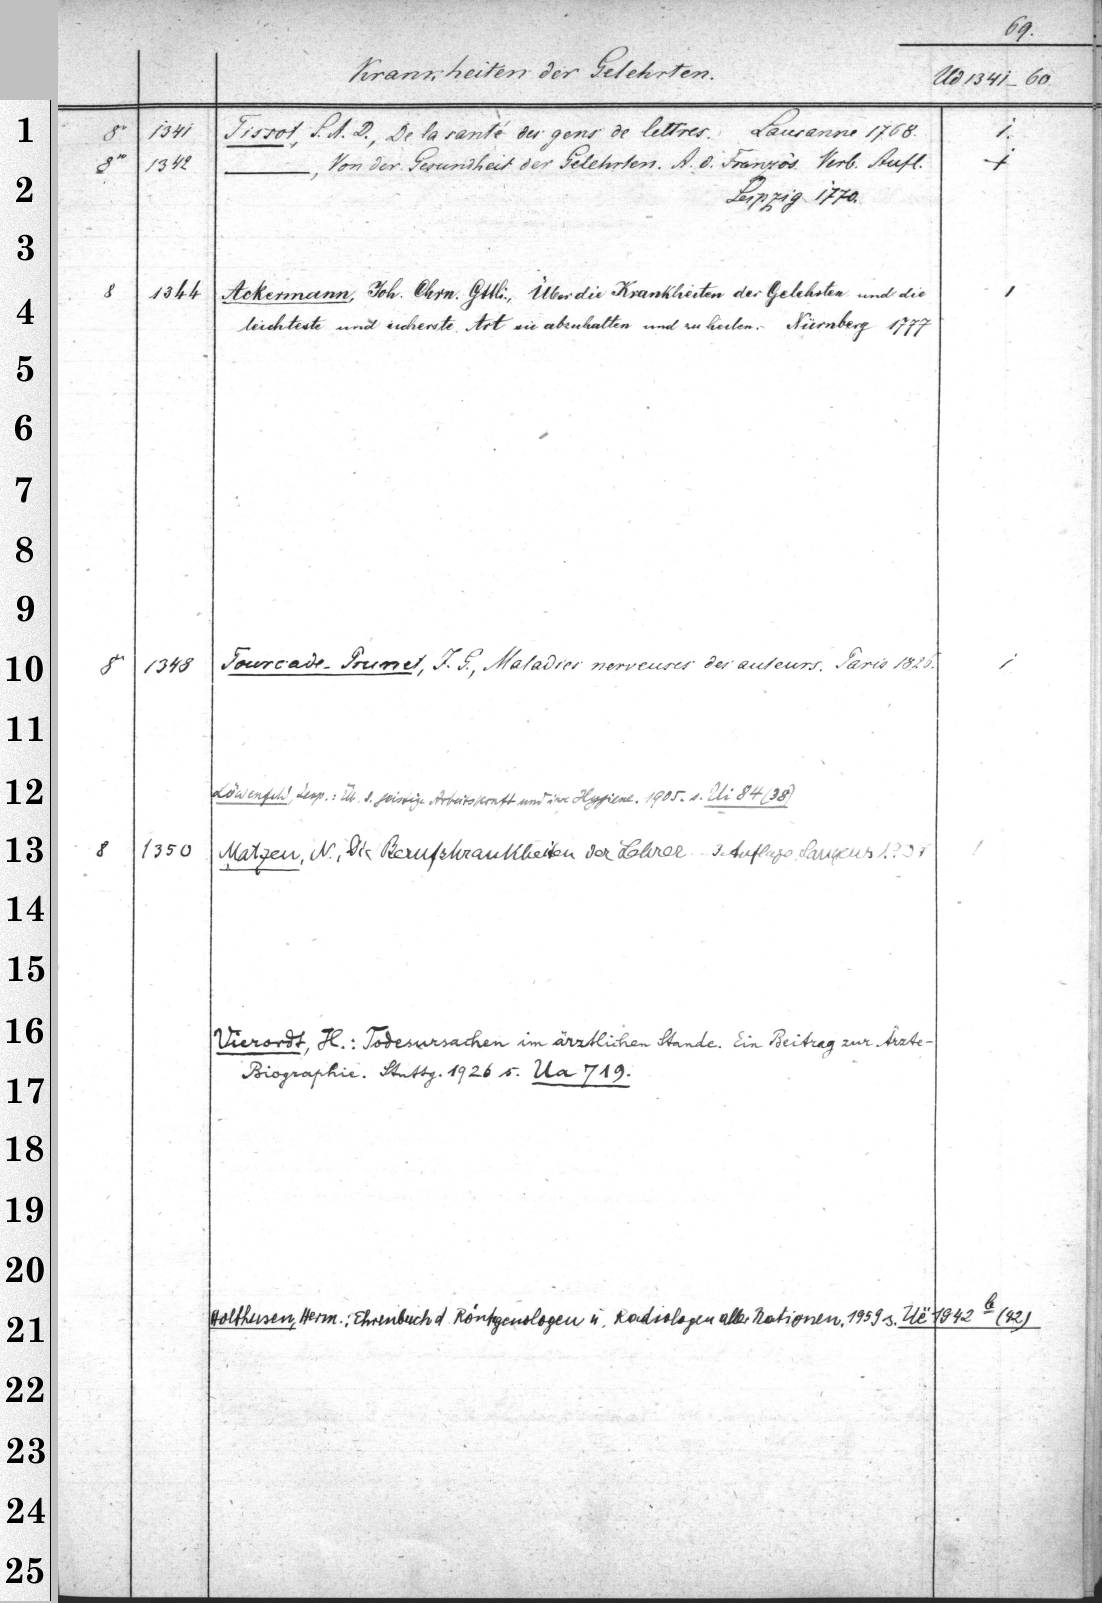 69.
Krankheiten der Gelehrten. Ud 1341-60
1 8° 1341 Tissot, S. A. D., De la santé des gens de lettres. Lausanne 1768. 1.
8° 1342 ———, Von der Gesundheit der Gelehrten. A. d. Französ. Verb. Aufl. +
2 Leipzig 1770.
3
4 8 1344 Ackermann, Joh. Chrn. Gttli., Über die Krankheiten der Gelehrten und die 1
leichteste und sicherste Art sie abzuhalten und zu heilen. Nürnberg 1777
5
6
7
8
9
10 8° 1348 Fourcade-Prunet, J. G., Maladies nerveuses des auteurs. Paris 1826. 1
11
12 Löwenfeld, Leop.: Üb. d. geistige Arbeitskraft und ihre Hygiene. 1905. s. Ui 84 (38)
13 8 1350 Matzen, N., Die Berufskrankheiten der Lehrer 3. Auflage 1
14
15
16 Vierordt, H.: Todesursachen im ärztlichen Stande. Ein Beitrag zur Ärzte-
17 Biographie. Stuttg. 1926 s. Ua 719.
18
19
20
21 Holthusen, Herm.: Ehrenbuch d. Röntgenologen u. Radiologen aller Nationen. 1959 s. Uë 1942 b (42)
22
23
24
25